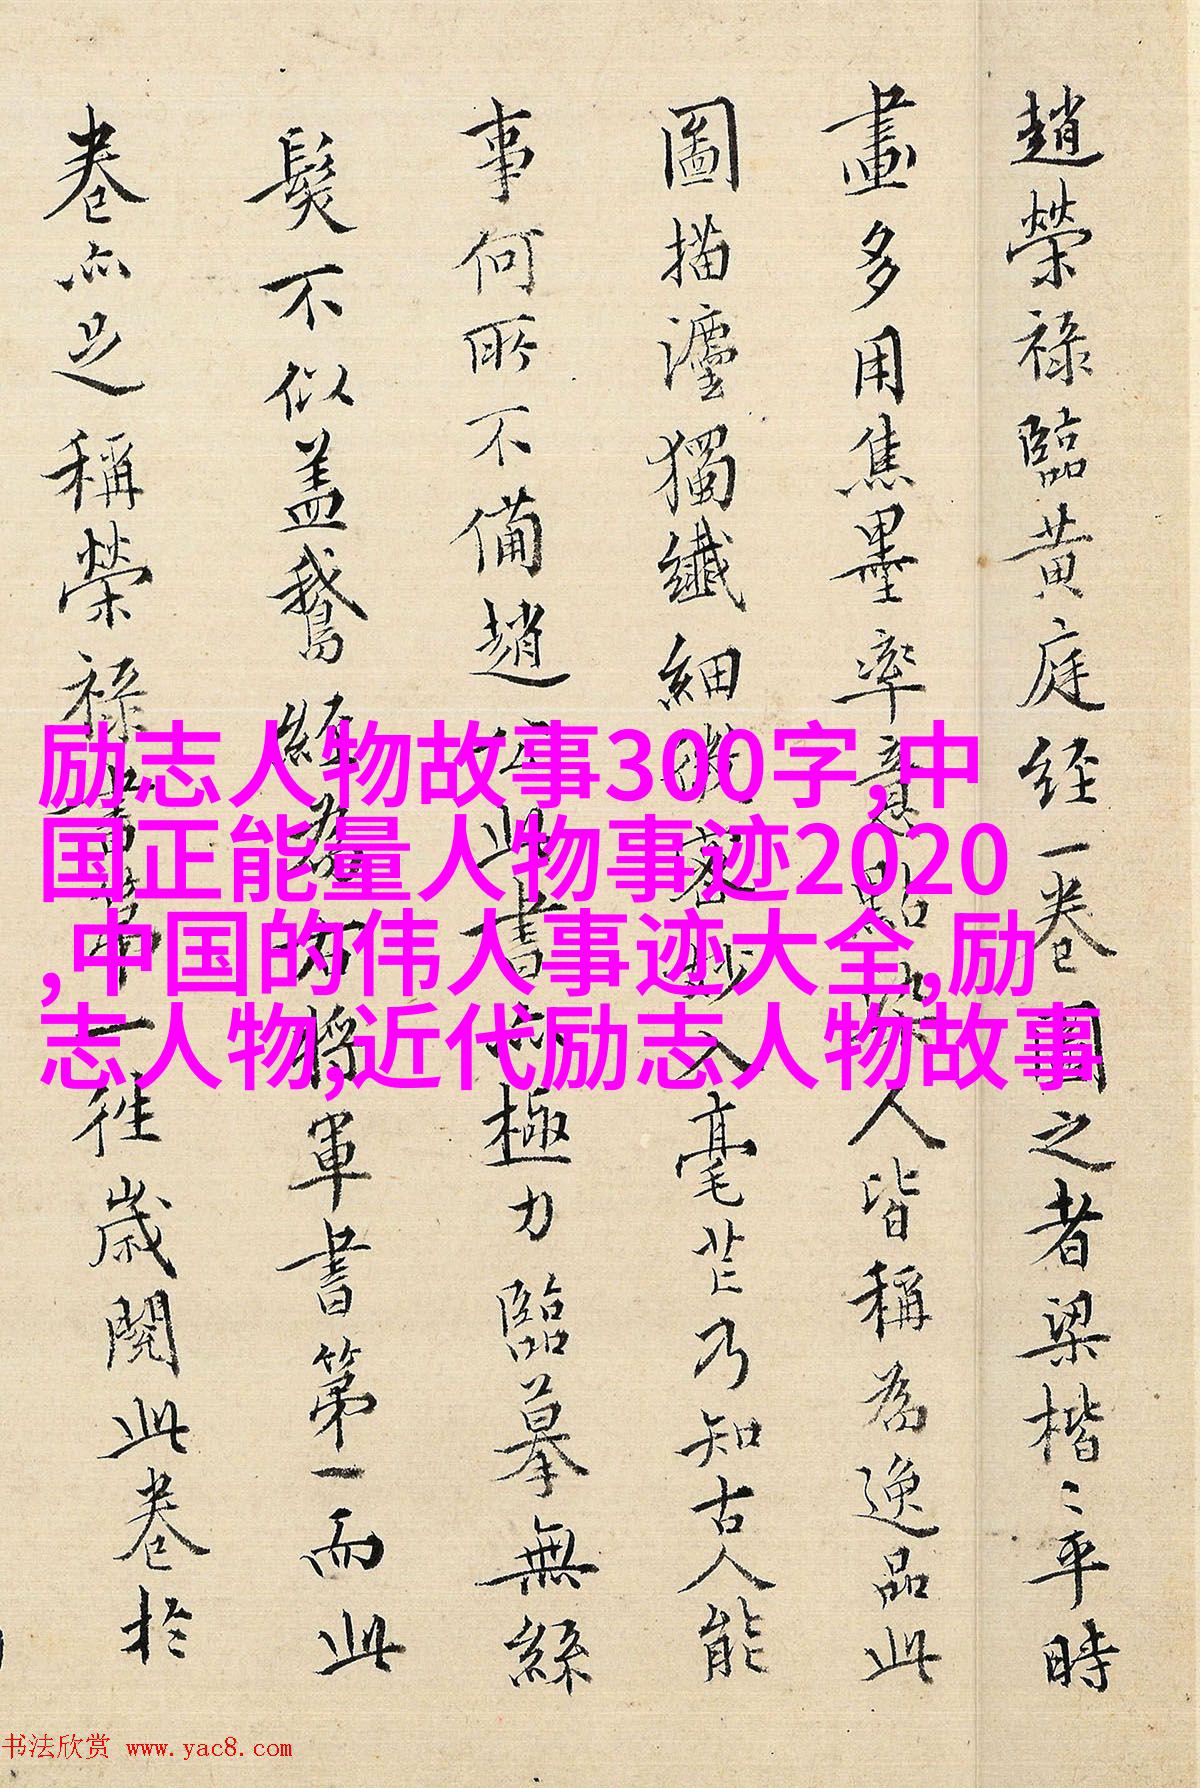 趙榮祿臨黃庭經一卷圖之者梁楷〻平時
畫多用焦墨率意點染人皆稱為逸品此
圖描灋獨纖細微密妙入毫芒乃知古人能
事何所不備趙公此書亦極力臨摹無絲
髮不似蓋鵞經為右將軍書第一而此
卷亦足稱榮祿書第一往歲閱此卷於
励志人物故事300字,中
国正能量人物事迹2020
,中国的伟人事迹大全,励
志人物,近代励志人物故事
书法欣赏 www.yac8.com